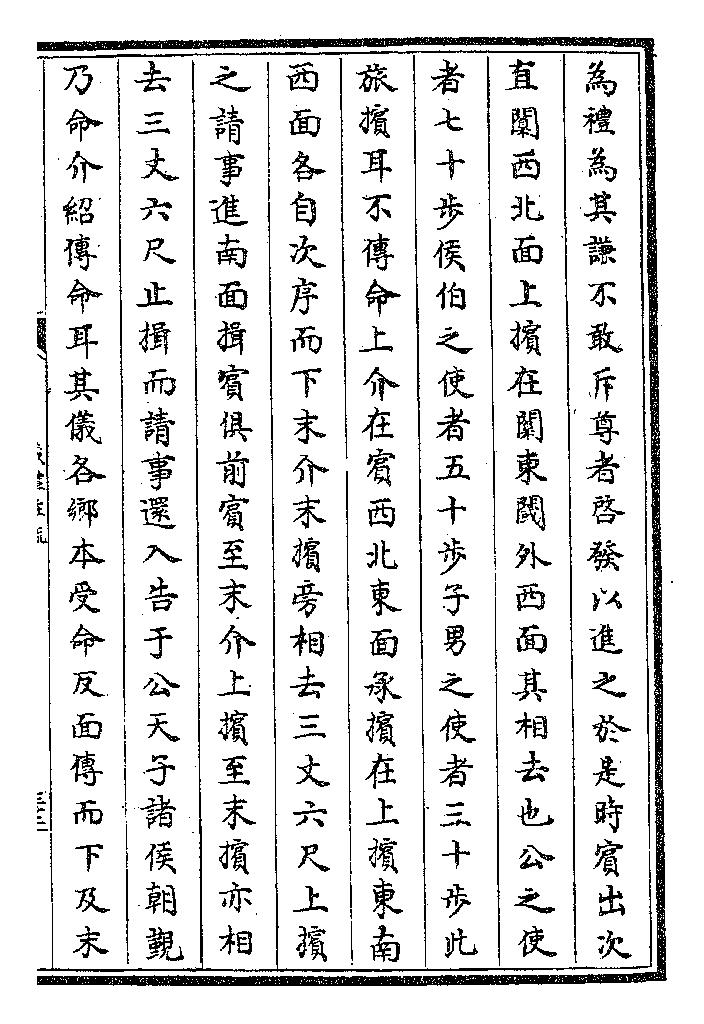 為禮為其謙不敢斥尊者啓發以進之於是時賓出次
直闑西北面上擯在闑東閾外西面其相去也公之使
者七十步侯伯之使者五十步子男之使者三十步此
旅擯耳不傳命上介在賓西北東面承擯在上擯東南
西面各自次序而下末介末擯旁相去三丈六尺上擯
之請事進南面揖賓俱前賓至末介上擯至末擯亦相
去三丈六尺止揖而請事還入告于公天子諸侯朝覲
乃命介紹傳命耳其儀各鄉本受命反面傳而下及末